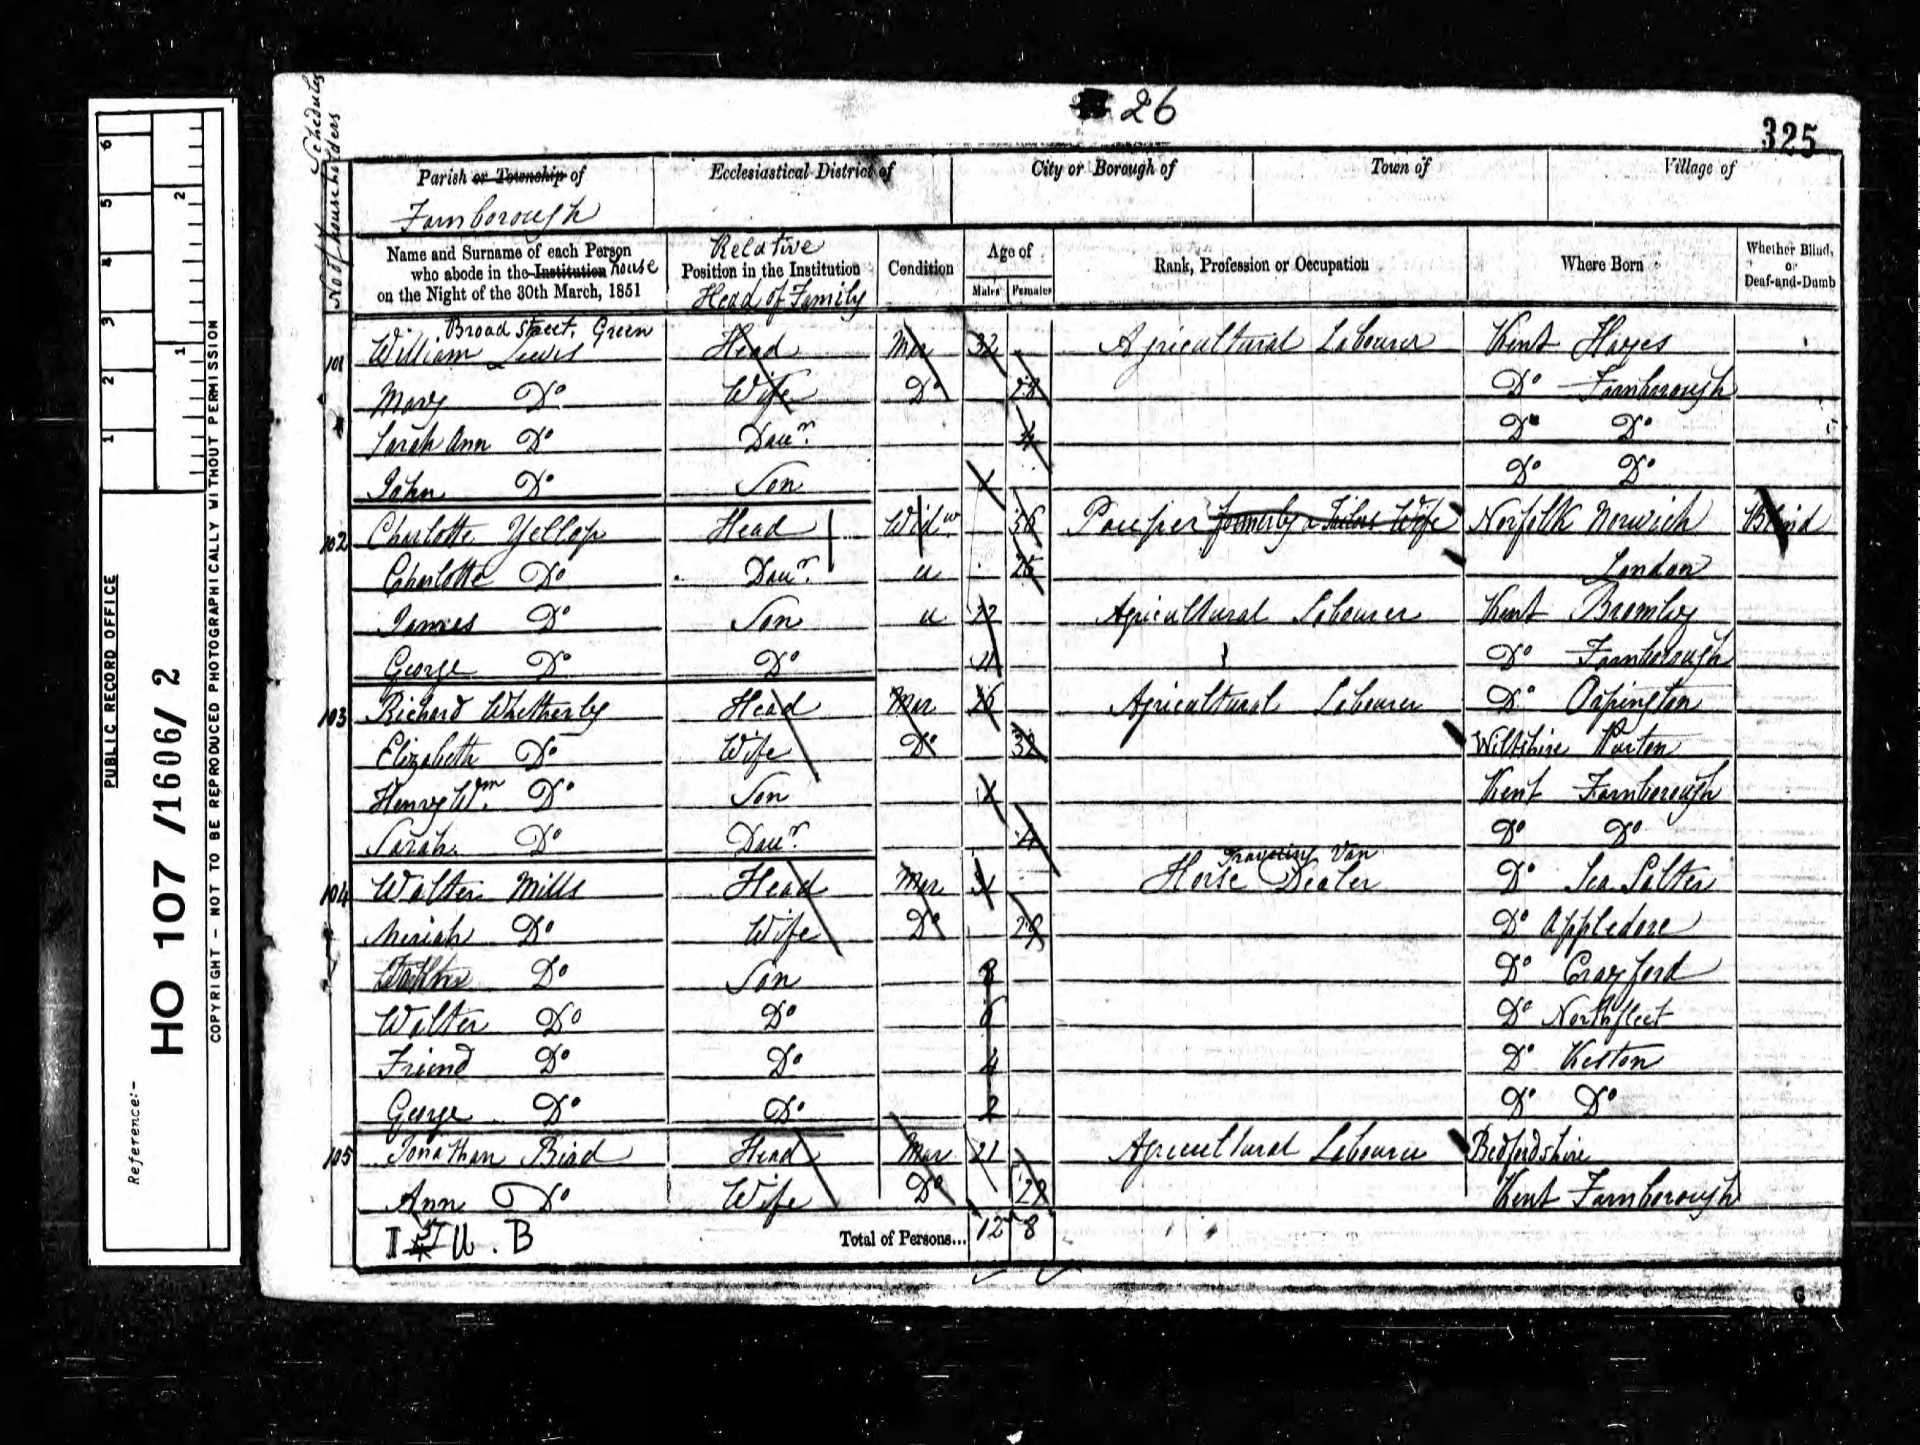 26
325
No of Householders Schedules
Parish or Township of Ecclesiastical District of City or Borough of Town of Village of
Farnborough
Name and Surname of each Person who abode in the Institution house on the Night of the 30th March, 1851 Relative Position in the Institution Head of Family Condition Age of Males Females Rank, Profession or Occupation Where Born Whether Blind, or Deaf-and-Dumb
Broad Street, Green
101 William Lewis Head Mar 32 Agricultural Labourer Kent Hayes
Mary Do Wife Do 28 Do Farnborough
Sarah Ann Do Daur. 4 Do Do
John Do Son Do Do
102 Charlotte Yellop Head Widw 56 Pauper formerly a Tailors Wife Norfolk Norwich Blind
Charlotte Do Daur. u London
James Do Son u 22 Agricultural Labourer Kent Bromley
George Do Do 11 Do Farnborough
103 Richard Whetherly Head Mar 26 Agricultural Labourer Do Orpington
Elizabeth Do Wife Do 32 Wiltshire
Henry Wm. Do Son Kent Farnborough
Sarah Do Daur. 4 Do Do
Traveling Van
104 Walter Mills Head Mar Horse Dealer Do Sea Salter
Miriah Do Wife Do 29 Do Appledore
Do Son 8 Do Crayford
Walter Do Do 6 Do Northfleet
Friend Do Do 4 Do Keston
George Do Do 2 Do Do
105 Jonathan Bird Head Mar 21 Agricultural Labourer Bedfordshire
Ann Do Wife Do 22 Kent Farnborough
I U. B Total of Persons... 12 8
G
6 5 4 3 2 1
2 1
PUBLIC RECORD OFFICE
Reference:-
HO 107 /1606/ 2
COPYRIGHT - NOT TO BE REPRODUCED PHOTOGRAPHICALLY WITHOUT PERMISSION